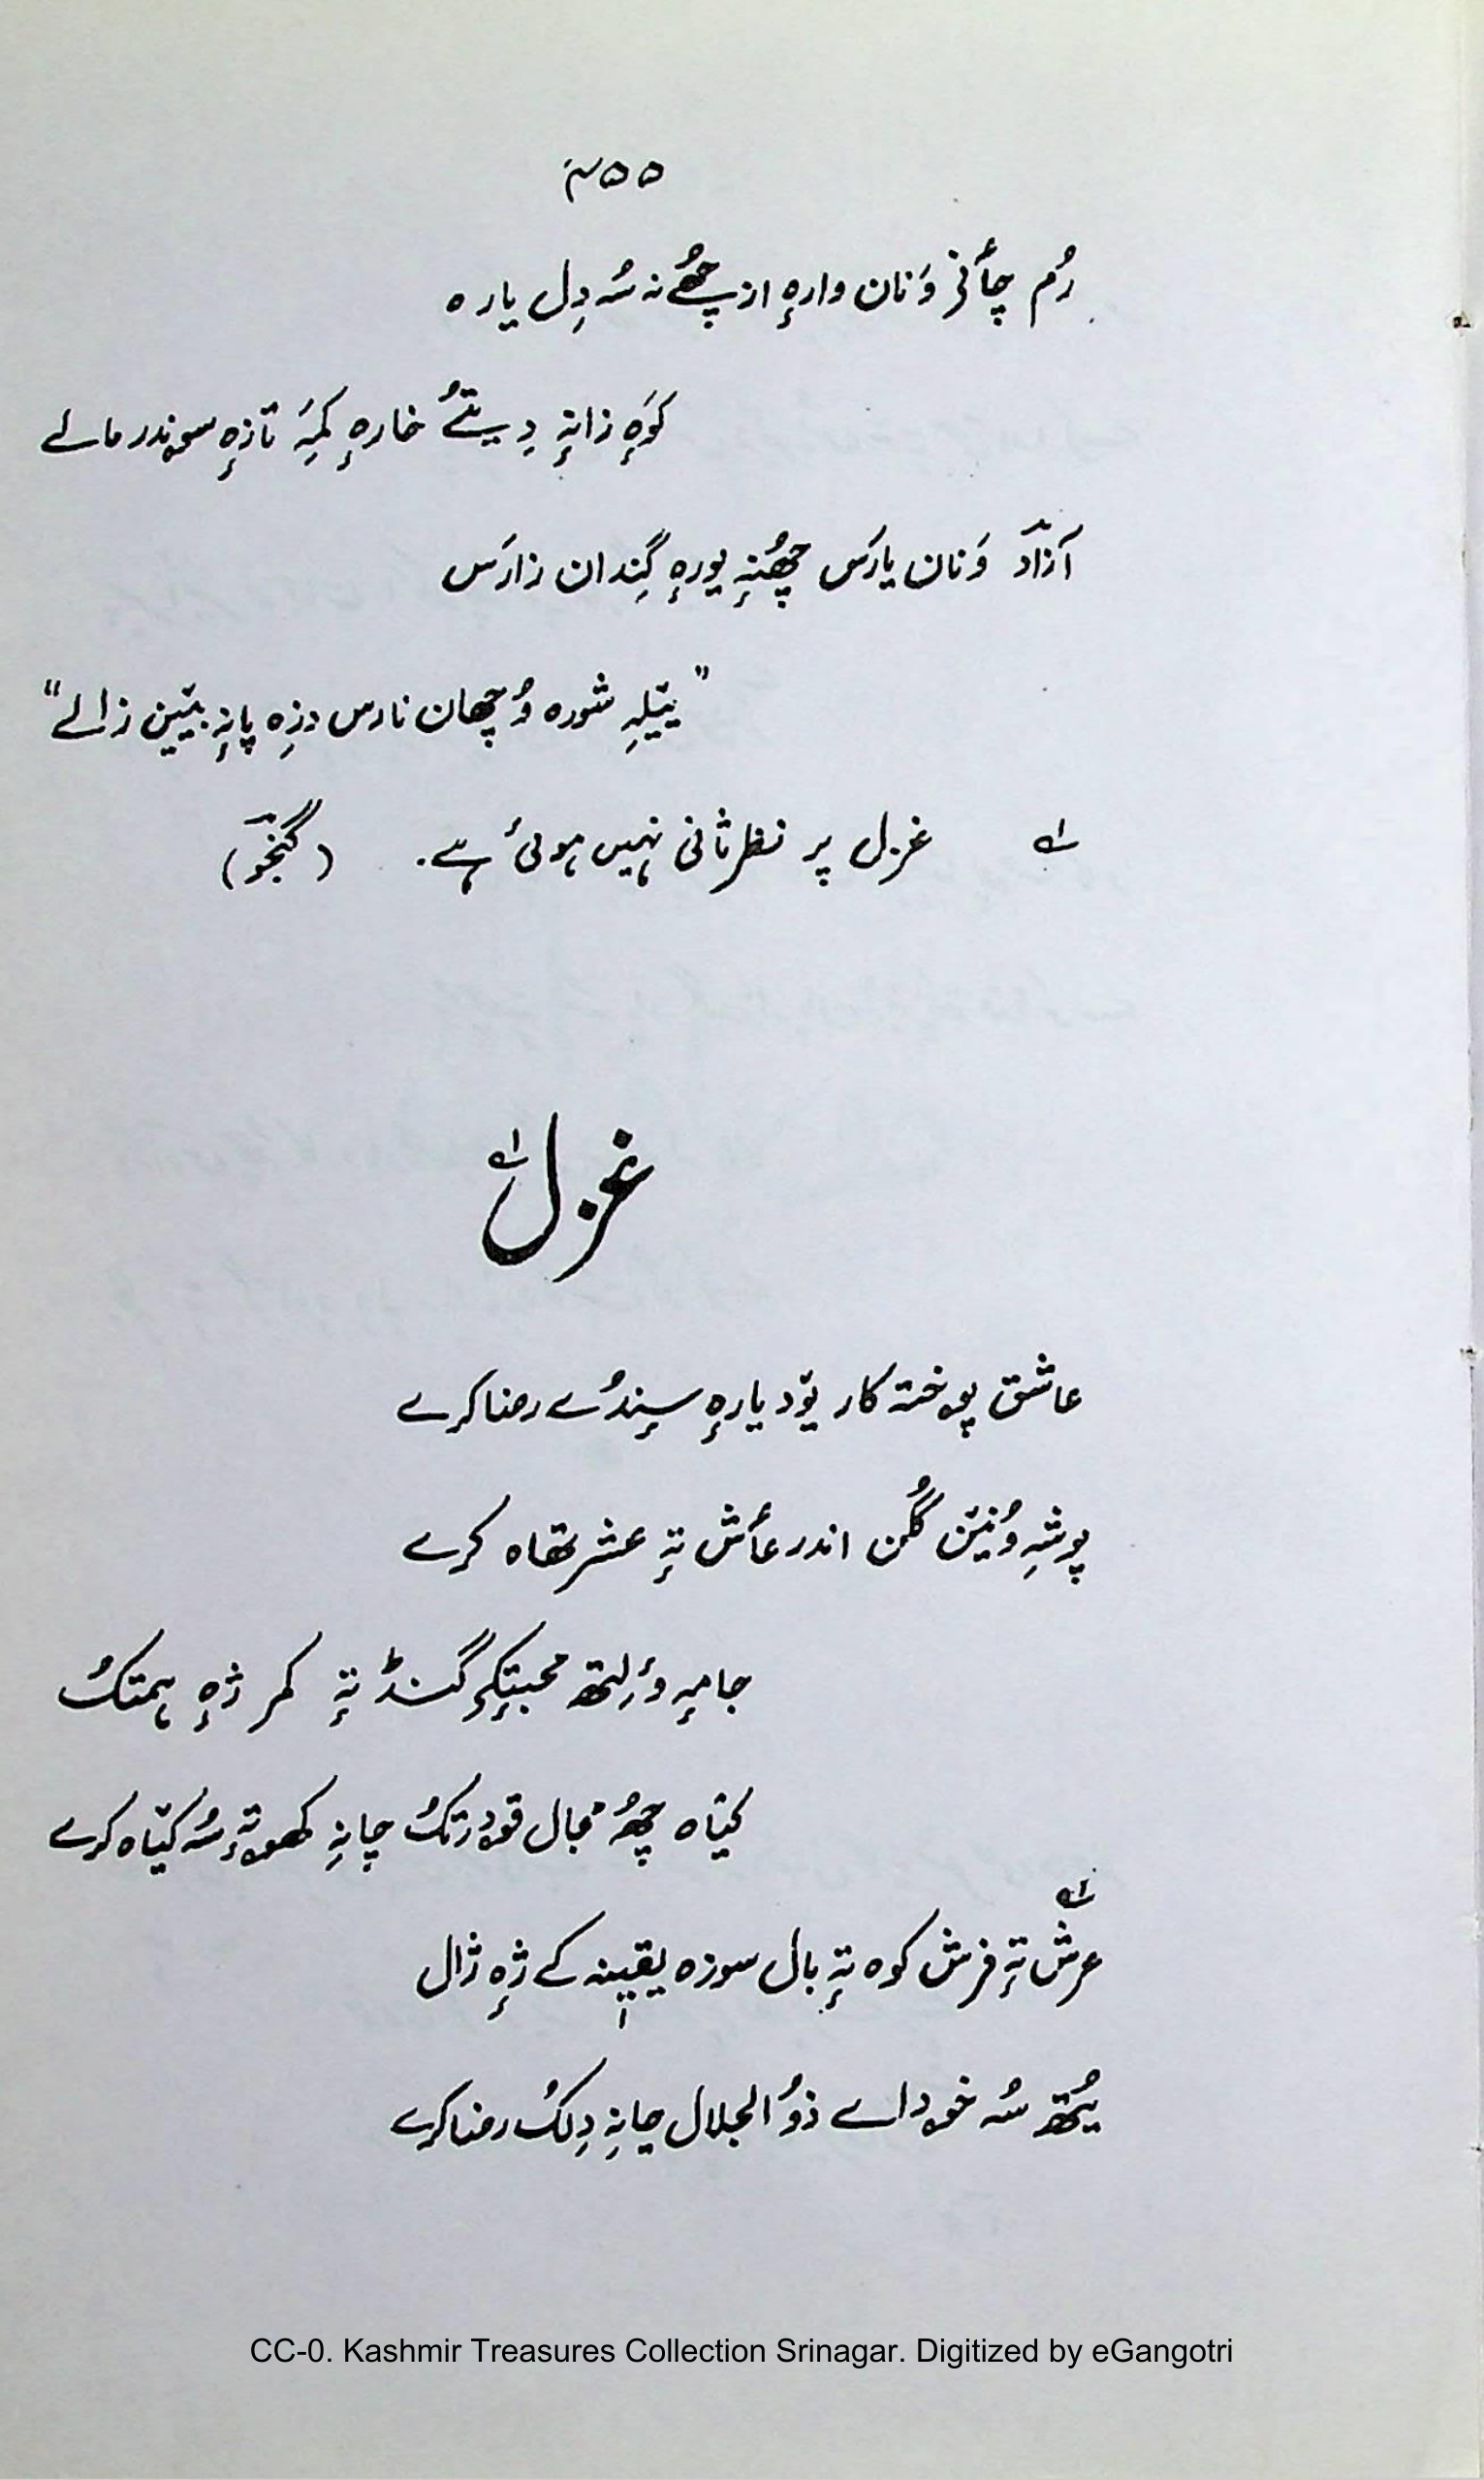 ۴۵۵
رُم چأنی وَنان وارہٕ از چھُے نہ سُہ دِل یارہ
کوَہٕ زانہٕ دِیتے خارہٕ کمِہَ تازہٕ سوندر مالے
آزاد وَنان یارَس چھُنہٕ پورہٕ گِندان زارَس
"ییٚلہِ شورہ وُچھان نارس دزِہ پانہٕ بیٚین زالے"
؎۱ غزل پر نظرثانی نہیں ہوئی ہے۔ (گنجو)
غزل ؎۱
عاشق پوختہ کار یوٚد یارہٕ سٕندُے رضا کرے
پوشہِ وُنیٚن گُلن اندر عأش تہٕ عشرتھاہ کرے
جامہٕ ؤلِتھ محبتٕکۍ گنڈ تہٕ کمر ژہٕ ہمتُک
کیٚاہ چھُ مجال قودرتُک چانہِ کھوتہٕ سُہ کیٚاہ کرے
؎۱
عرش تہٕ فرش کوہ تہٕ بال سوزہ یقیٖنہ کے ژہٕ ژال
یُتھ سُہ خوداے ذوُالجلال چانہِ دِلُک رضا کرے
CC-0. Kashmir Treasures Collection Srinagar. Digitized by eGangotri